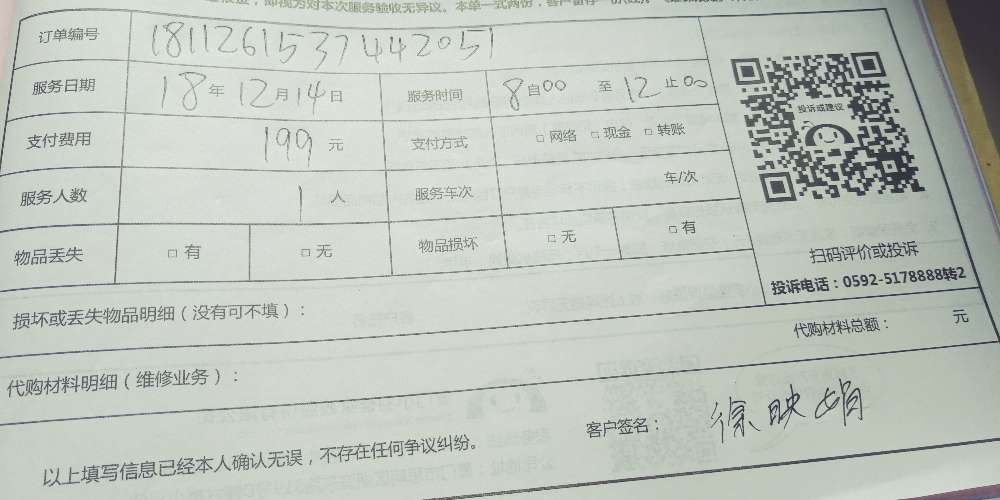 即视为对本次服务验收无异议。本单一式两份，客户留存一份
订单编号 1811261537442051
服务日期 18年12月14日 服务时间 8自00 至12止00
支付费用 199 元 支付方式 □网络 □现金 □转账
服务人数 1 人 服务车次 车/次
物品丢失 □有 □无 物品损坏 □无 □有
投诉或建议
扫码评价或投诉
投诉电话：0592-5178888转2
损坏或丢失物品明细（没有可不填）：
代购材料总额： 元
代购材料明细（维修业务）：
客户签名： 徐映娟
以上填写信息已经本人确认无误，不存在任何争议纠纷。